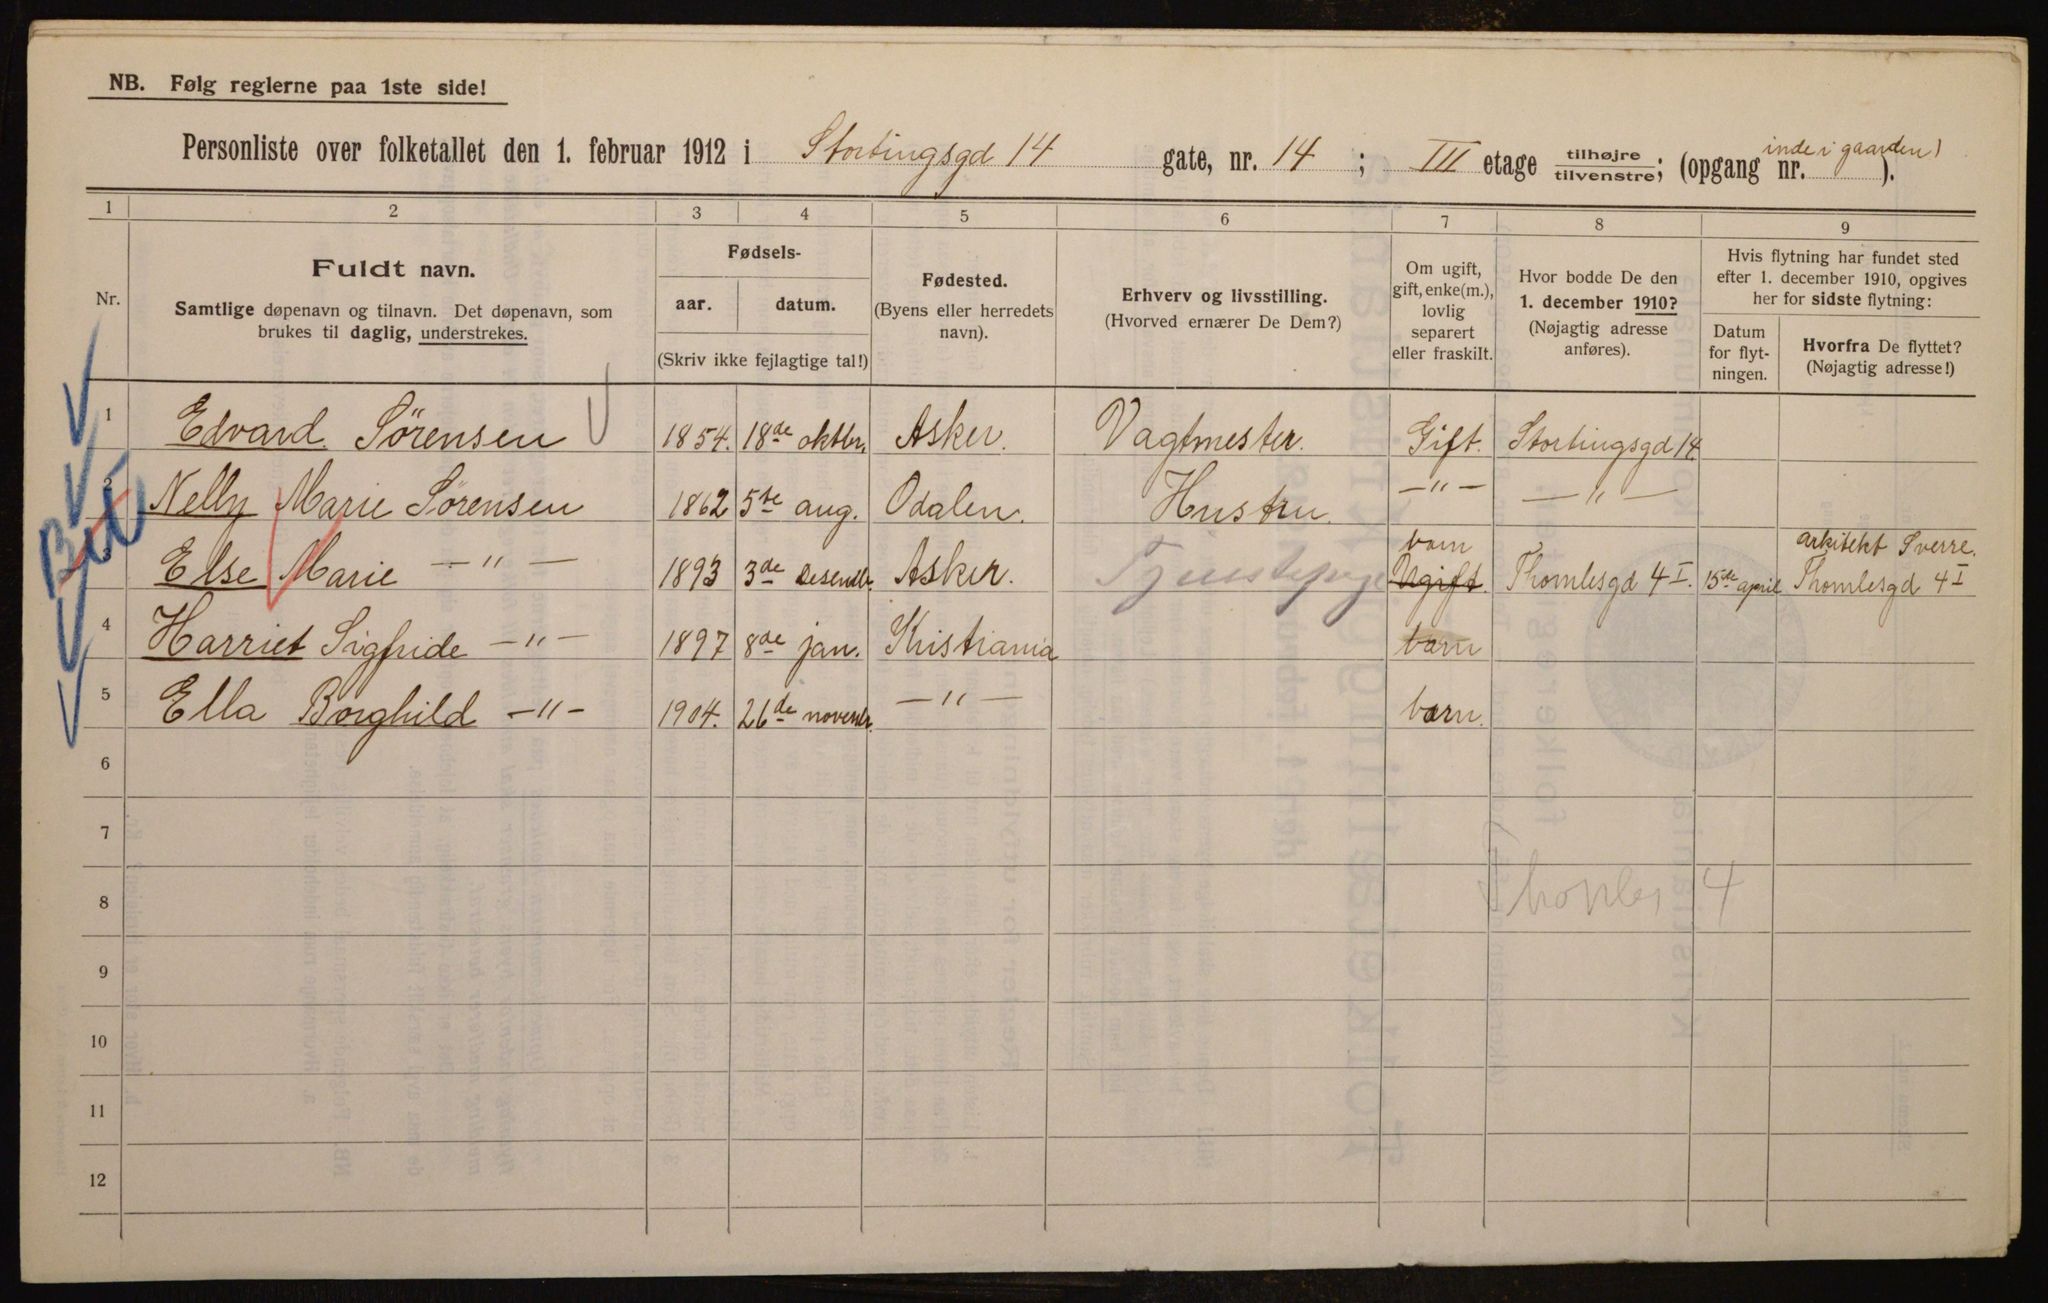 NB. Følg reglerne paa 1ste side!
Personliste over folketallet den 1. februar 1912 i Stortingsgd 14 gate, nr. 14; III etage tilhøjre tilvenstre; (opgang nr. inde i gaarden).
1 2 3 4 5 6 7 8 9
Nr.
Fuldt navn.
Samtlige døpenavn og tilnavn. Det døpenavn, som
brukes til daglig, understrekes.
Fødsels-
aar. datum.
(Skriv ikke fejlagtige tal!)
Fødested.
(Byens eller herredets
navn).
Erhverv og livsstilling.
(Hvorved ernærer De Dem?)
Om ugift,
gift, enke(m.),
lovlig
separert
eller fraskilt.
Hvor bodde De den
1. december 1910?
(Nøjagtig adresse
anføres).
Hvis flytning har fundet sted
efter 1. december 1910, opgives
her for sidste flytning:
Datum
for flyt-
ningen.
Hvorfra De flyttet?
(Nøjagtig adresse!)
1 Edvard Sørensen 1854. 18de oktbr. Asker. Vagtmester. Gift. Stortingsgd 14.
2 Nelly Marie Sørensen 1862 5te aug. Odalen. Hustru. —"— —"—
3 Else Marie —"— 1893 3de desembr. Asker. Tjenestepige barn Ugift. Thomlesgd 4 I. 15de april arkitekt Sverre. Thomlesgd 4 I
4 Harriet Sigfride —"— 1897 8de jan. Kristiania barn
5 Ella Borghild —"— 1904. 26de novembr. —"— barn.
6
7
8 Thomles 4
9
10
11
12